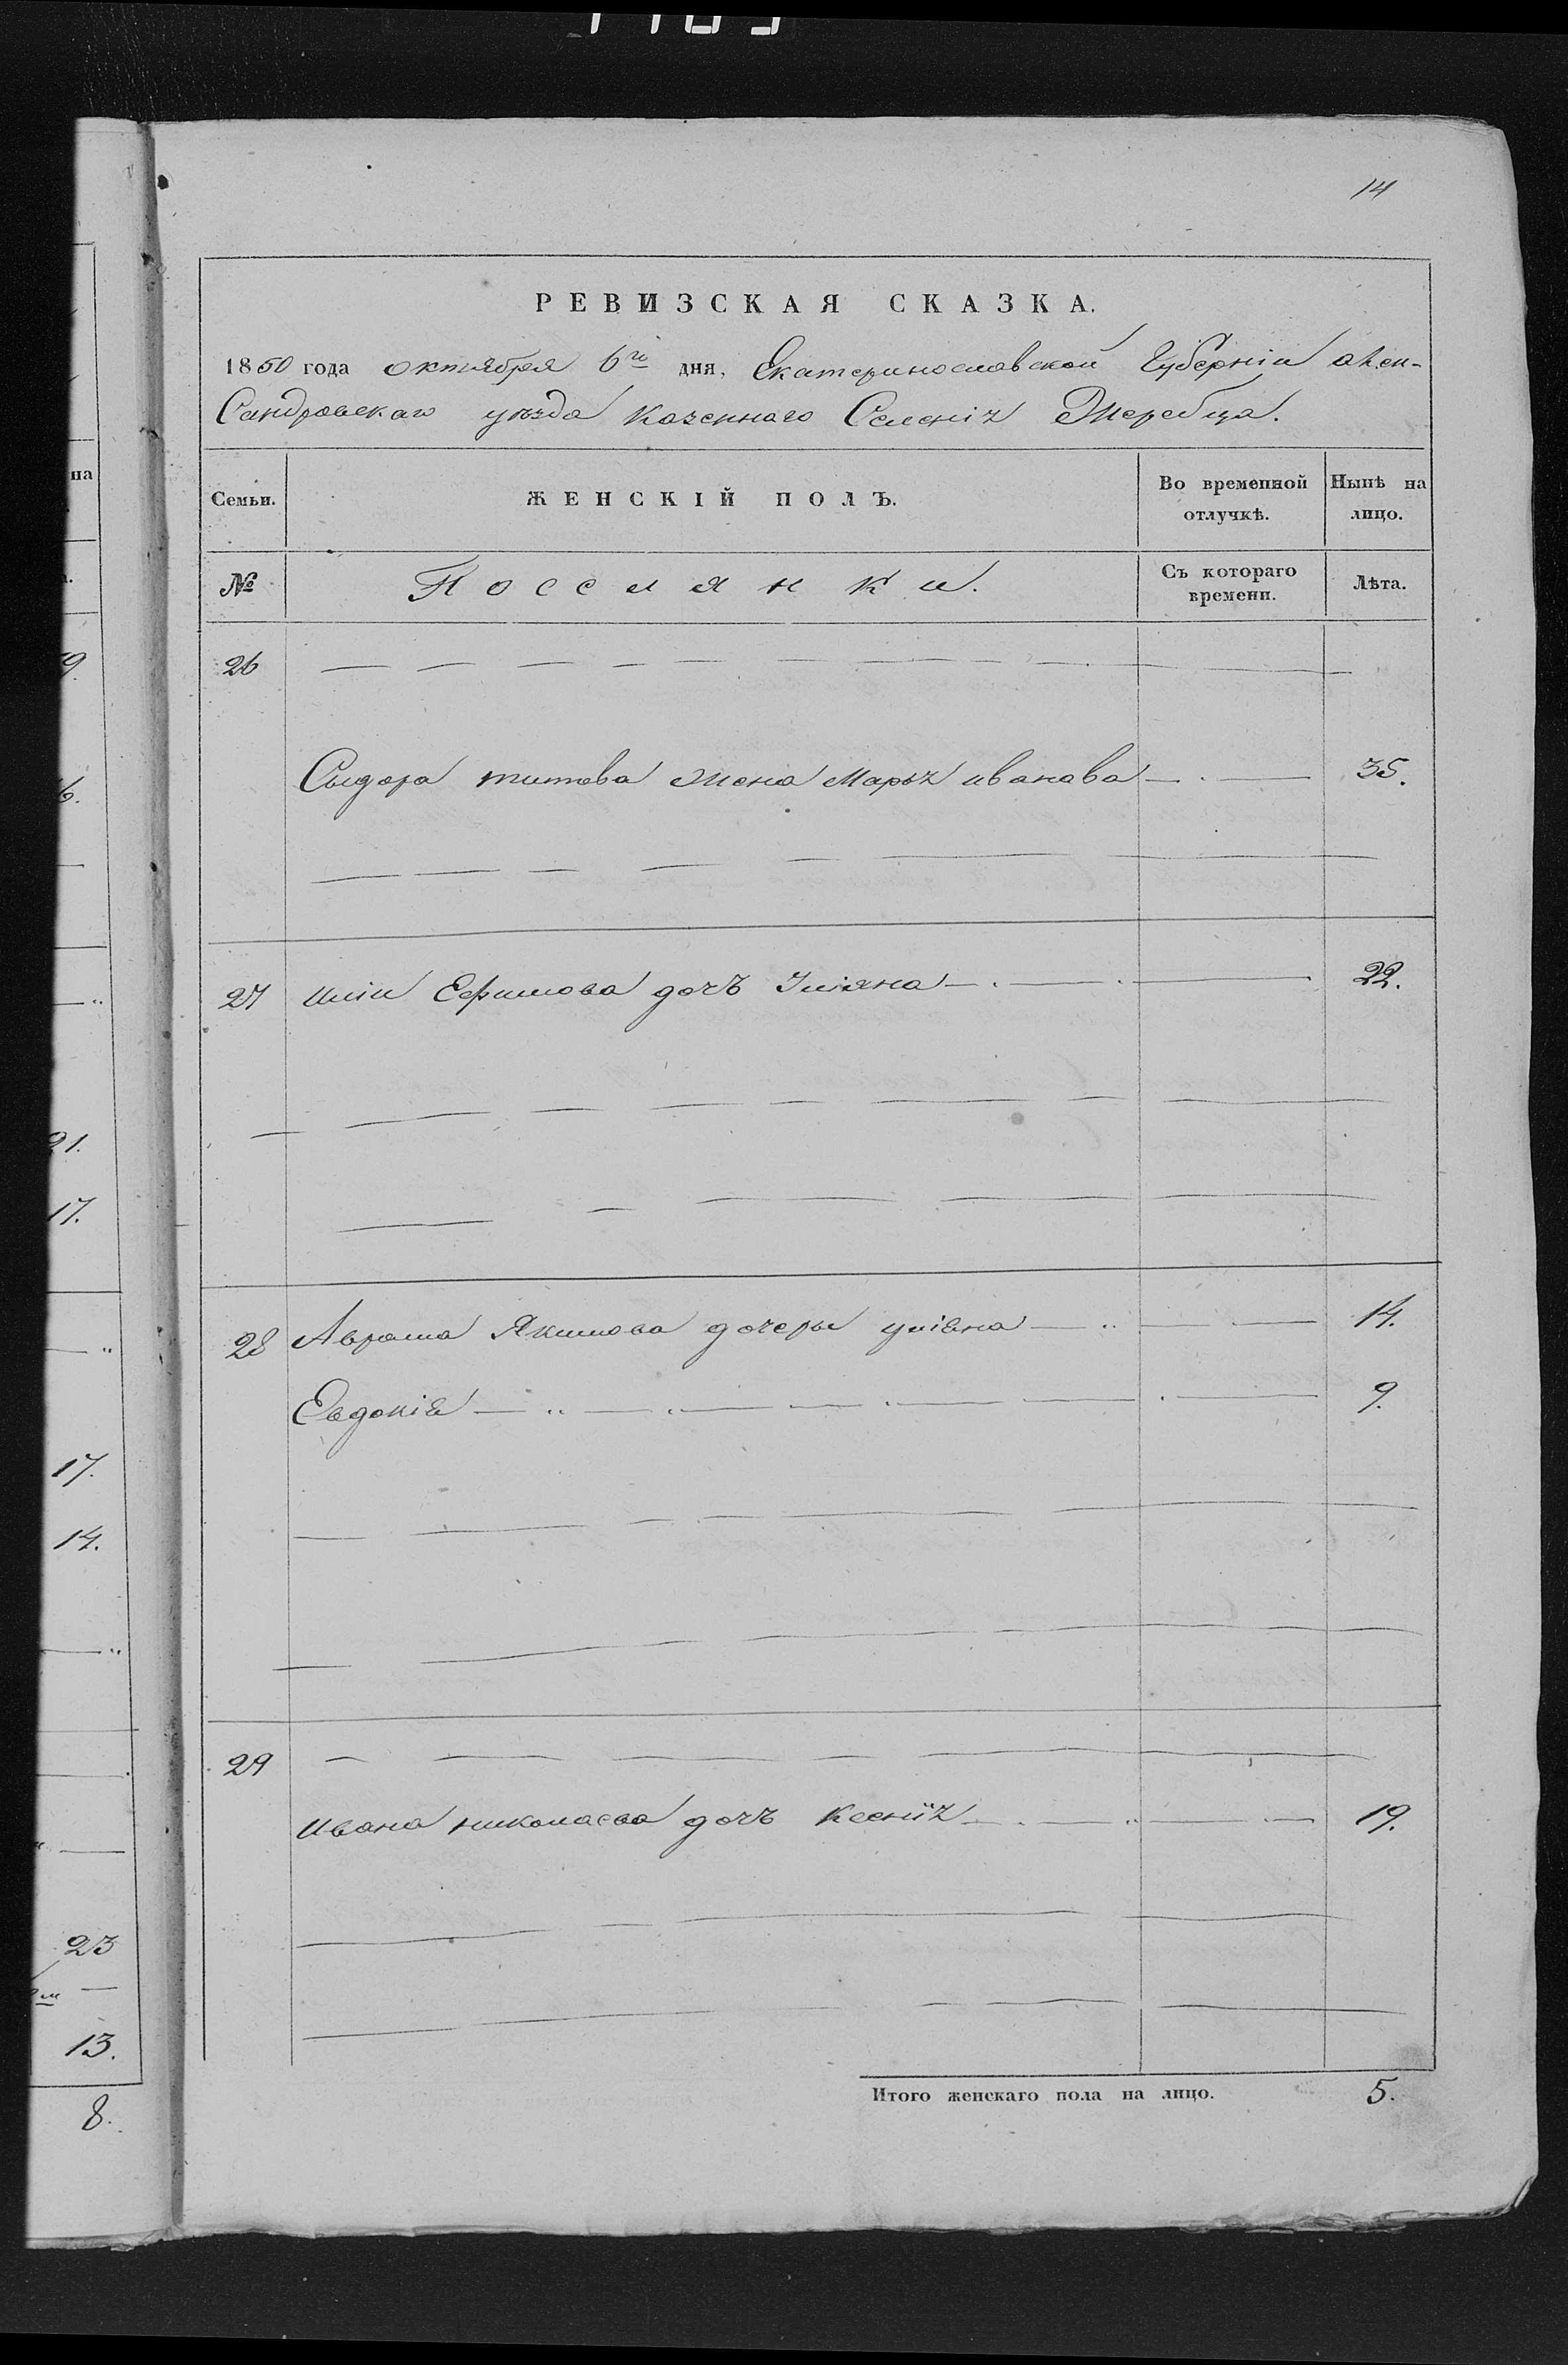 14
РЕВИЗСКАЯ СКАЗКА.
1850 года октября 6го дня, Екатеринославской Губерніи алек-
Сандровскаго уезда Казеннаго Селенія Жеребца.
на
Семьи. ЖЕНСКІЙ ПОЛЪ. Во временной отлучкѣ. Нынѣ на лицо.
№ Поселянки. Съ котораго времени. Лѣта.
26
Сидора титова жена Марья иванова 35.
27 иліи Ефимова дочь Уліяна 22.
28 Аврама Якимова дочери уліяна 14.
Евдокія 9.
29
ивана николаева дочь Ксенія 19.
Итого женскаго пола на лицо. 5.
9.
6.
21.
17.
17.
14.
23
13.
8.